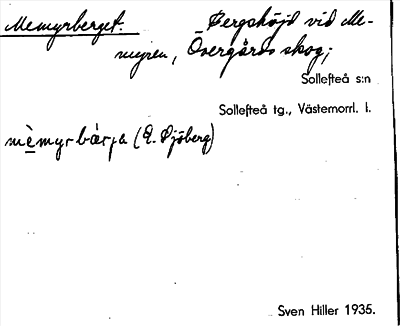 Memyrberget. Bergshöjd vid Me-
myren, Övergårds skog;
Sollefteå s:n
Sollefteå tg., Västernorrl. l.
mè̱myrbærja (E. Sjöberg)
Sven Hiller 1935.